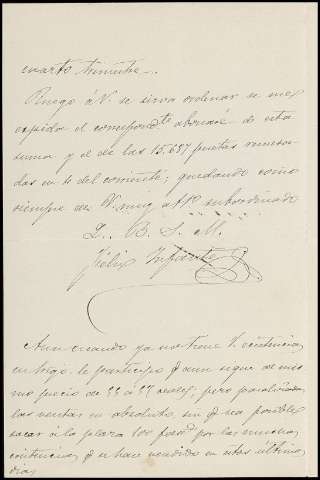 cuarto trimestre.
Ruego á V. se sirva ordenar se me
expida el correspondte abonaré de esta
suma y el de las 15.657 pesetas remesa-
das en 1º del corriente; quedando como
siempre de V. muy afmo subordinado
Q. B. S. M.
Félix Infante
Aun cuando ya no tiene V. existencias
en trigo le participo q aun sigue al mis-
mo precio de 55 á 57 reales, pero paralizadas
las ventas en absoluto, sin q sea posible
sacar á la plaza 100 fans por las muchas
existencias q se han vendido en estos últimos
dias